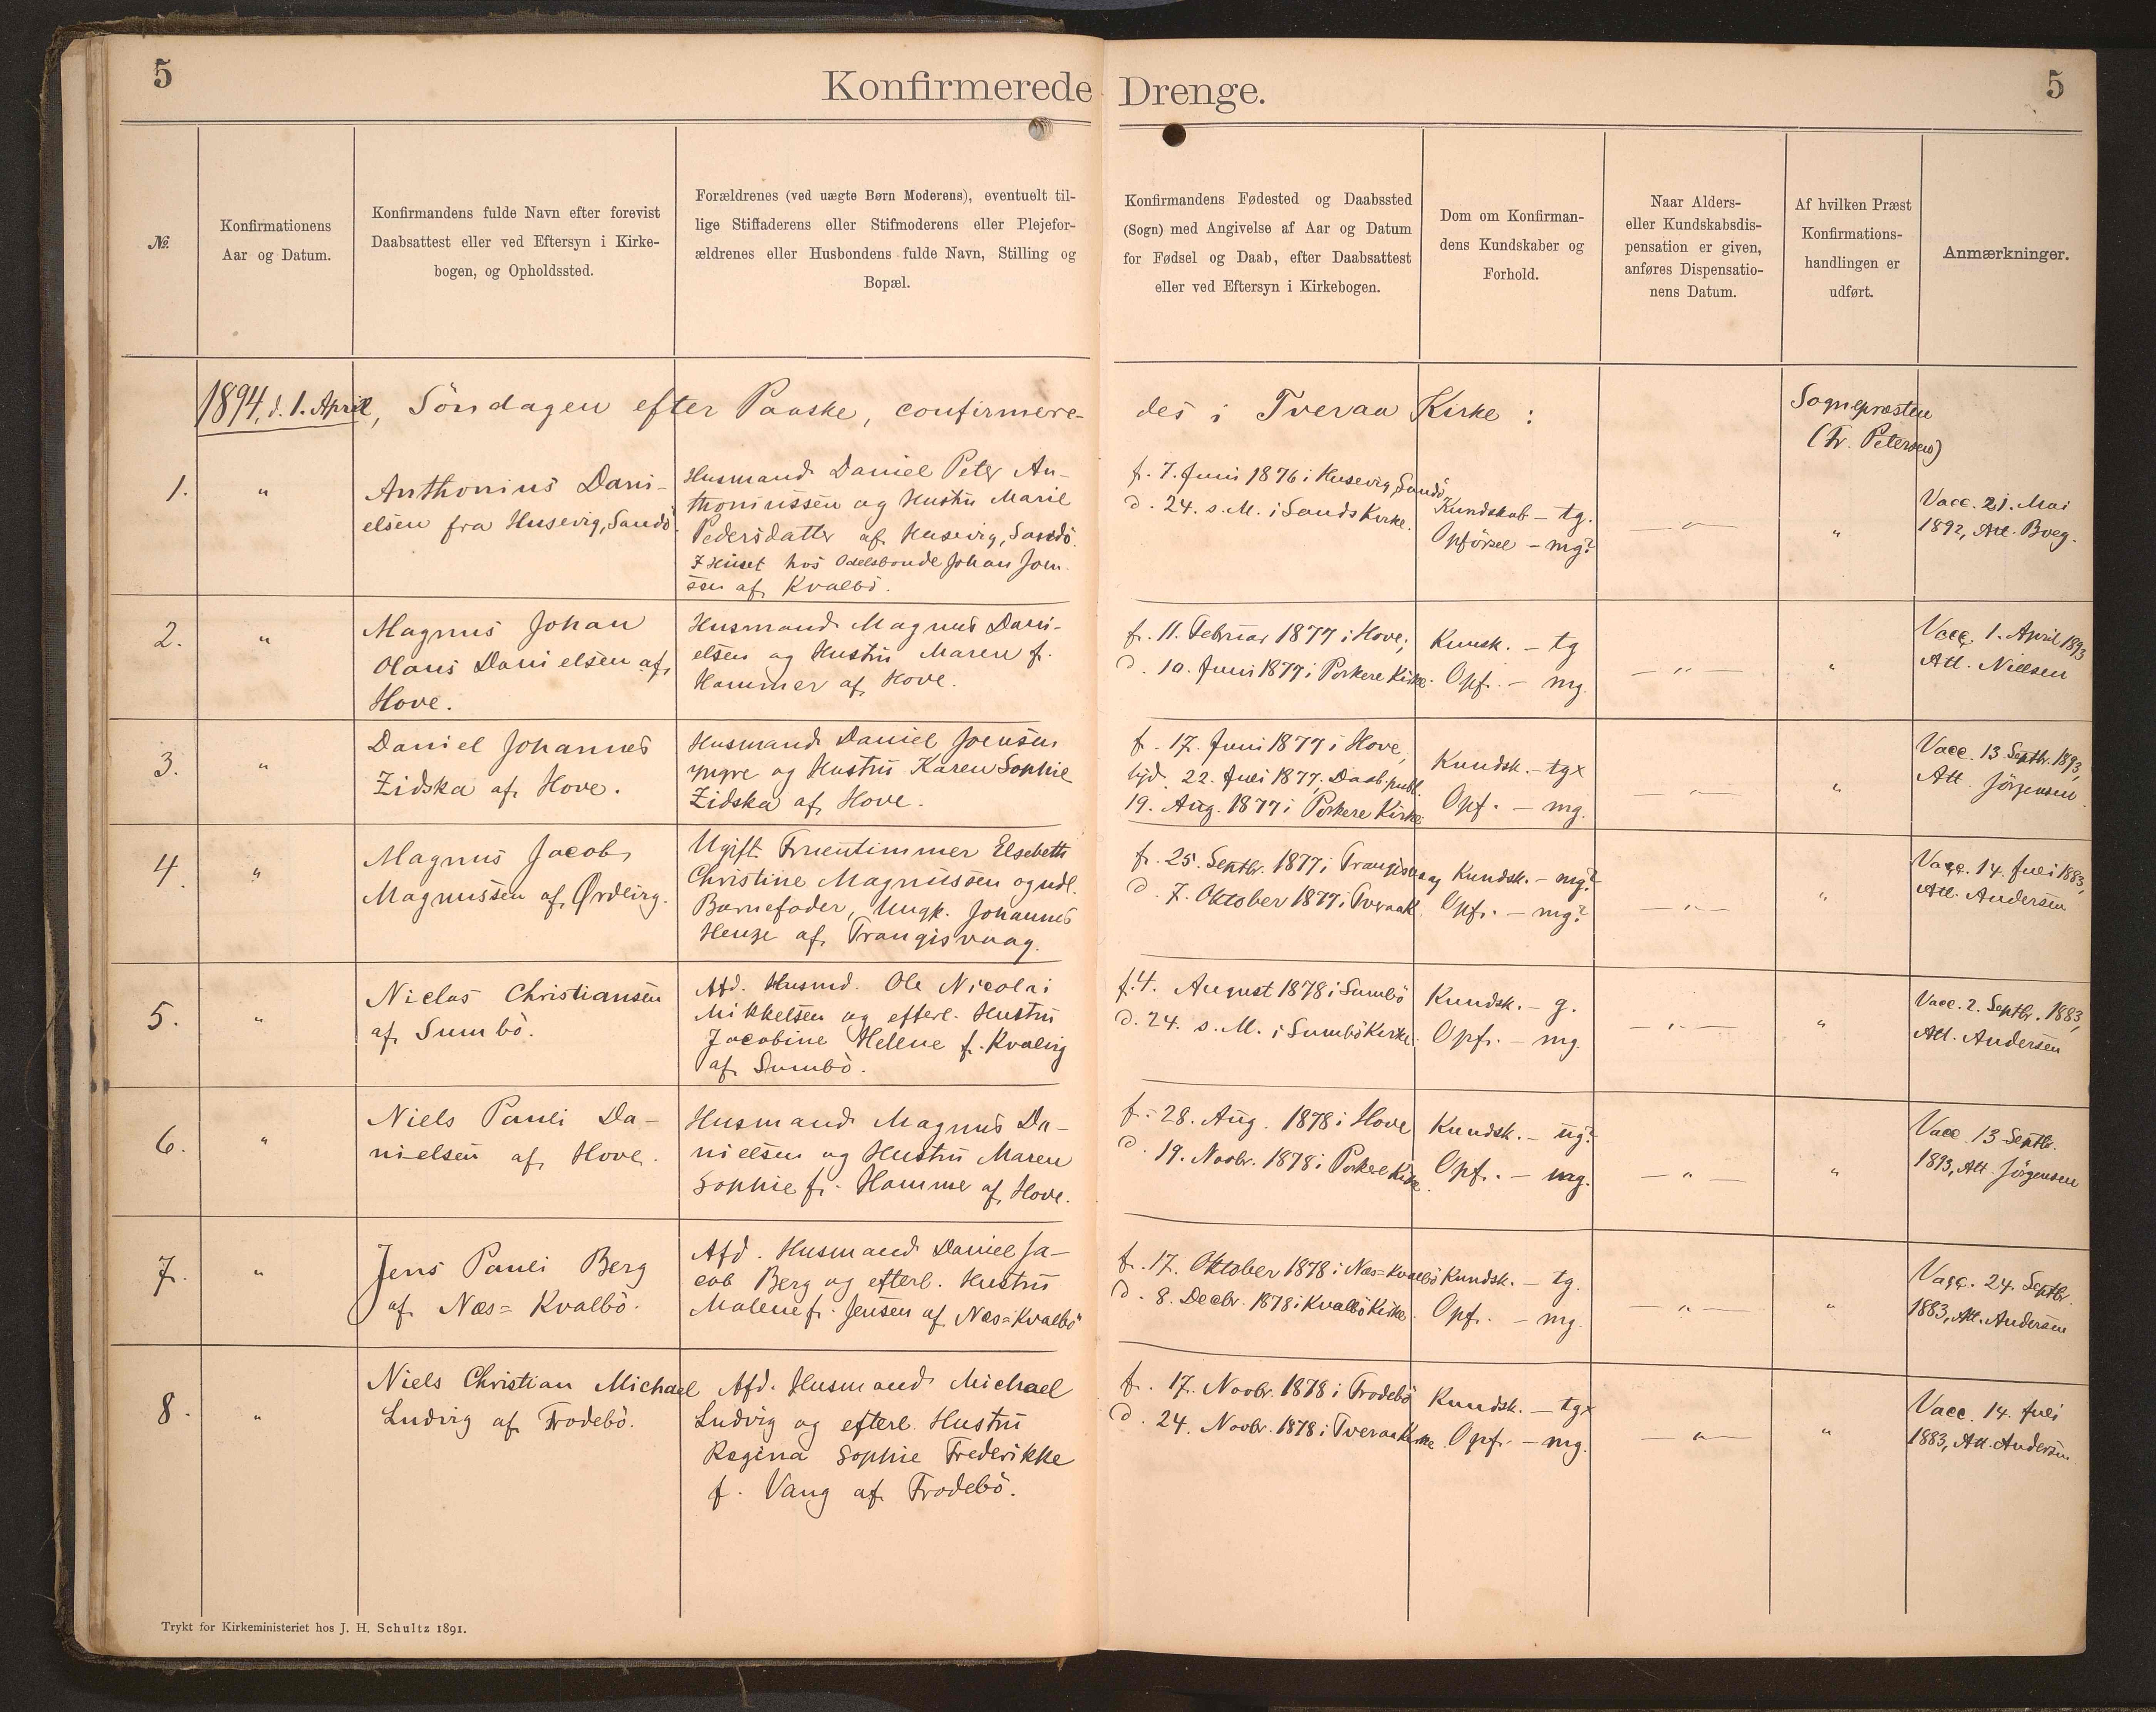 5
Konfirmerede Drenge.
5
№.
Konfirmationens
Aar og Datum.
Konfirmandens fulde Navn efter forevist
Daabsattest eller ved Eftersyn i Kirke-
bogen, og Opholdssted.
Forældrenes (ved uægte Børn Moderens), eventuelt til-
lige Stiffaderens eller Stifmoderens eller Plejefor-
ældrenes eller Husbondens fulde Navn, Stilling og
Bopæl.
Konfirmandens Fødested og Daabssted
(Sogn) med Angivelse af Aar og Datum
for Fødsel og Daab, efter Daabsattest
eller ved Eftersyn i Kirkebogen.
Dom om Konfirman-
dens Kundskaber og
Forhold.
Naar Alders-
eller Kundskabsdis-
pensation er given,
anføres Dispensatio-
nens Datum.
Af hvilken Præst
Konfirmations-
handlingen er
udført.
Anmærkninger.
1894, d. 1. April, Söndagen efter Paaske, confirmere-
des i Tveraa Kirke:
Sognepræsten
(Fr. Petersen)
1.
"
Anthonius Dani-
elsen fra Husevig, Sandö.
Husmand Daniel Peter An-
thoniussen og Hustru Marie
Pedersdatter af Husevig, Sandö.
I Huset hos Odelsbonde Johan Joen-
sen af Kvalbö.
f. 7. Juni 1876 i Husevig, Sandö
d. 24. s. M. i Sands Kirke.
Kundskab - tg.
Opförsel - mg?
— " —
"
Vacc. 21. Mai
1892, Att. Boeg.
2.
"
Magnus Johan
Olaus Danielsen af
Hove.
Husmand Magnus Dani-
elsen og Hustru Maren f.
Hammer af Hove.
f. 11. Februar 1877 i Hove;
d. 10. Juni 1877 i Porkere Kirke.
Kunsk. - tg
Opf. - mg.
— " —
"
Vacc. 1. April 1893
Att. Nielsen
3.
"
Daniel Johannes
Zidska af Hove.
Husmand Daniel Joensen
yngre og Hustru Karen Sophie
Zidska af Hove.
f. 17. Juni 1877 i Hove,
hjd. 22. Juli 1877. Daab. publ.
19. Aug. 1877 i Porkere Kirke
Kundsk. - tg×
Opf. - mg.
— " —
"
Vacc. 13. Septbr. 1893,
Att. Jörgensen.
4.
"
Magnus Jacob
Magnussen af Ørdevig.
Ugift Fruentimmer Elsebeth
Christine Magnussen og udl.
Barnefader, Ungk. Johannes
Henze af Trangisvaag.
f. 25. Septbr. 1877 i Trangisvaag
d. 7. Oktober 1877 i Tveraa K.
Kundsk. - mg?
Opf. - mg?
— " —
"
Vacc. 14. Juli 1883,
Att. Andersen
5.
"
Niclas Christiansen
af Sumbö.
Afd. Husmd. Ole Nicolai
Mikkelsen og efterl. Hustru
Jacobine Helene f. Kvalvig
af Sumbö.
f. 4. August 1878 i Sumbö
d. 24. s. M. i Sumbö Kirke.
Kundsk. - g.
Opf. - mg.
— " —
"
Vacc. 2. Septbr. 1883,
Att. Andersen
6.
"
Niels Pauli Da-
nielsen af Hove.
Husmand Magnus Da-
nielsen og Hustru Maren
Sophie f. Hammer af Hove.
f. 28. Aug. 1878 i Hove
d. 19. Novbr. 1878 i Porkere Kirke.
Kundsk. - ug?
Opf. - mg.
— " —
"
Vacc. 13 Septbr.
1893, Att. Jörgensen
7.
"
Jens Pauli Berg
af Næs=Kvalbö.
Afd. Husmand Daniel Ja-
cob Berg og efterl. Hustru
Malene f. Jensen af Næs=Kvalbö
f. 17. Oktober 1878 i Næs=Kvalbö
d. 8. Decbr. 1878 i Kvalbö Kirke.
Kundsk. - tg.
Opf. - mg.
— " —
"
Vacc. 24. Septbr.
1883, Att. Andersen
8.
"
Niels Christian Michael
Ludvig af Frodebö.
Afd. Husmand Michael
Ludvig og efterl. Hustru
Regina Sophie Frederikke
f. Vang af Frodebö.
f. 17. Novbr. 1878 i Frodebö
d. 24. Novbr. 1878 i Tveraa Kirke.
Kundsk. - tg×
Opf. - mg.
— " —
"
Vacc. 14. Juli
1883, Att. Andersen
Trykt for Kirkeministeriet hos J. H. Schultz 1891.